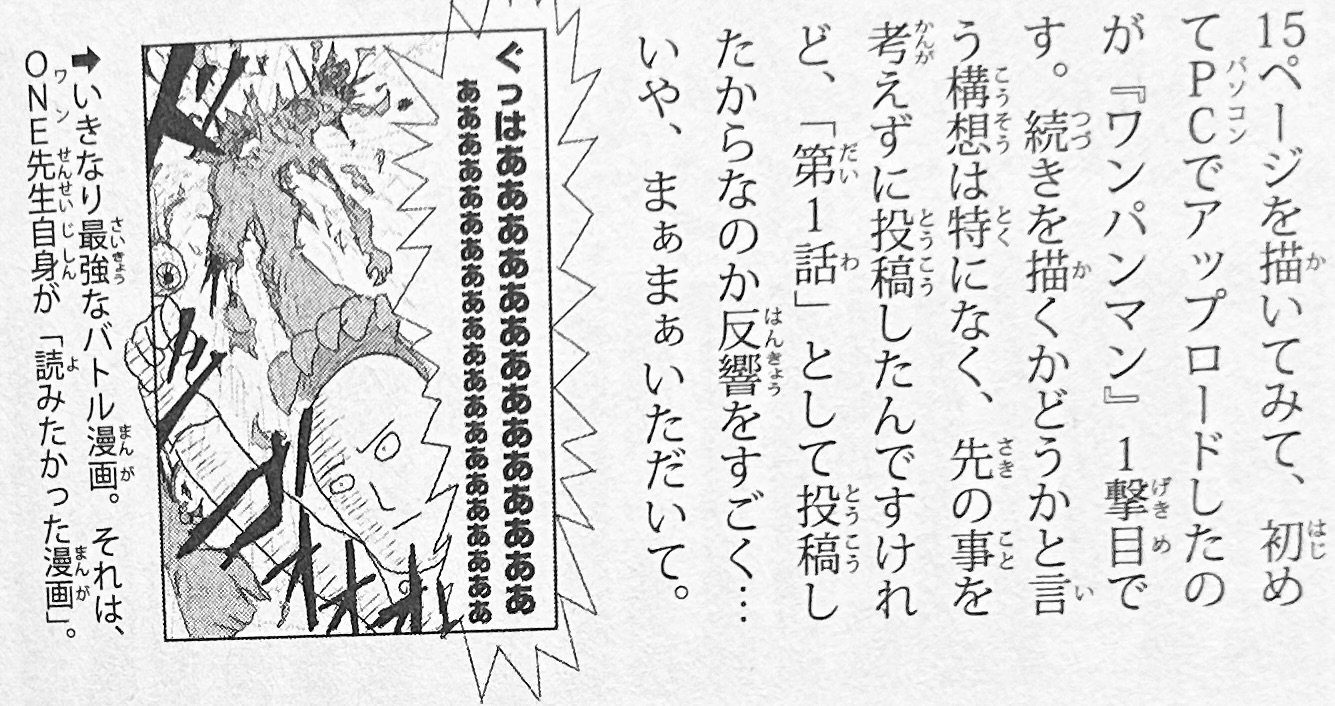 15ページを描いてみて、初め
てPCでアップロードしたの
が『ワンパンマン』1撃目で
す。続きを描くかどうかと言
う構想は特になく、先の事を
考えずに投稿したんですけれ
ど、「第1話」として投稿し
たからなのか反響をすごく…
いや、まぁまぁいただいて。
ぐっはあああああああああああああああああ
ああああああああああああああああああああ
➡いきなり最強なバトル漫画。それは、
ONE先生自身が「読みたかった漫画」。